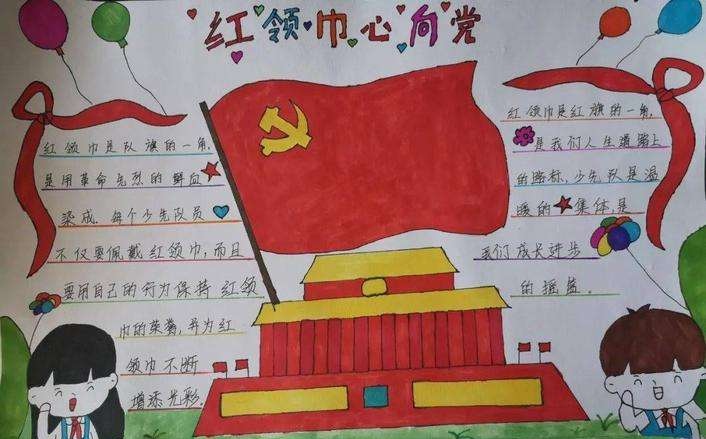 红领巾心向党
红领巾是队旗的一角，
是用革命先烈的鲜血
染成.每个少先队员
不仅要佩戴红领巾，而且
要用自己的行为保持红领
巾的荣誉，并为红
领巾不断
增添光彩.
红领巾是红旗的一角，
是我们人生道路上
的路标，少先队是温
暖的集体是
我们成长进步
的摇篮。